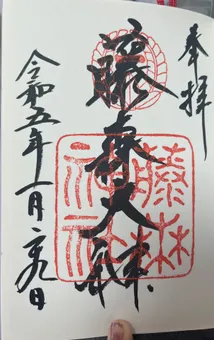 奉拝
藤森大神
藤森
神社
令和五年一月二九日